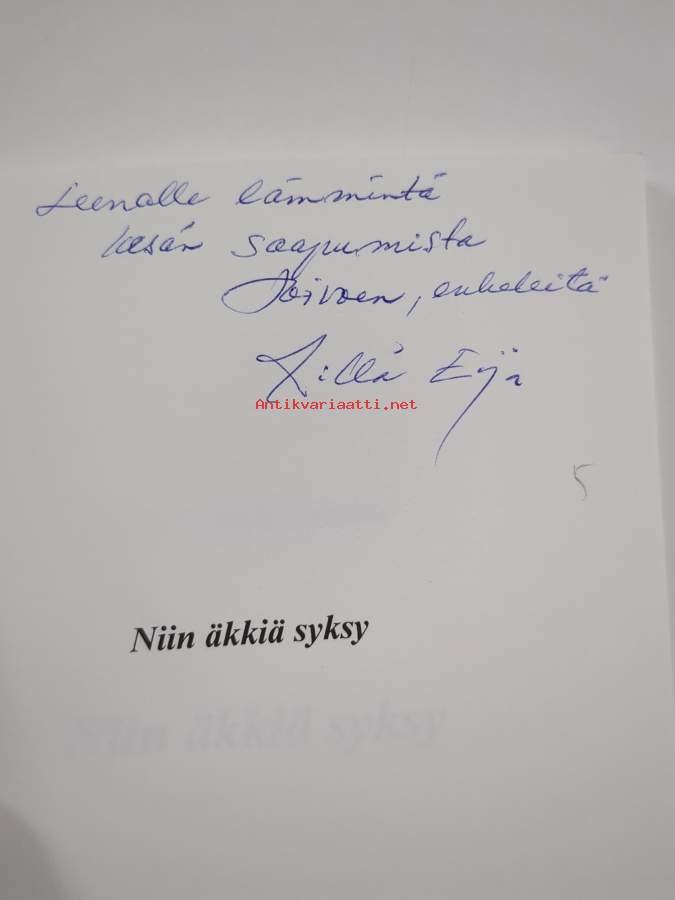 Leenalle lämmintä
kesän saapumista
toivoen, enkeleitä
Eija
Antikvariaatti.net
5
Niin äkkiä syksy
Niin äkkiä syksy